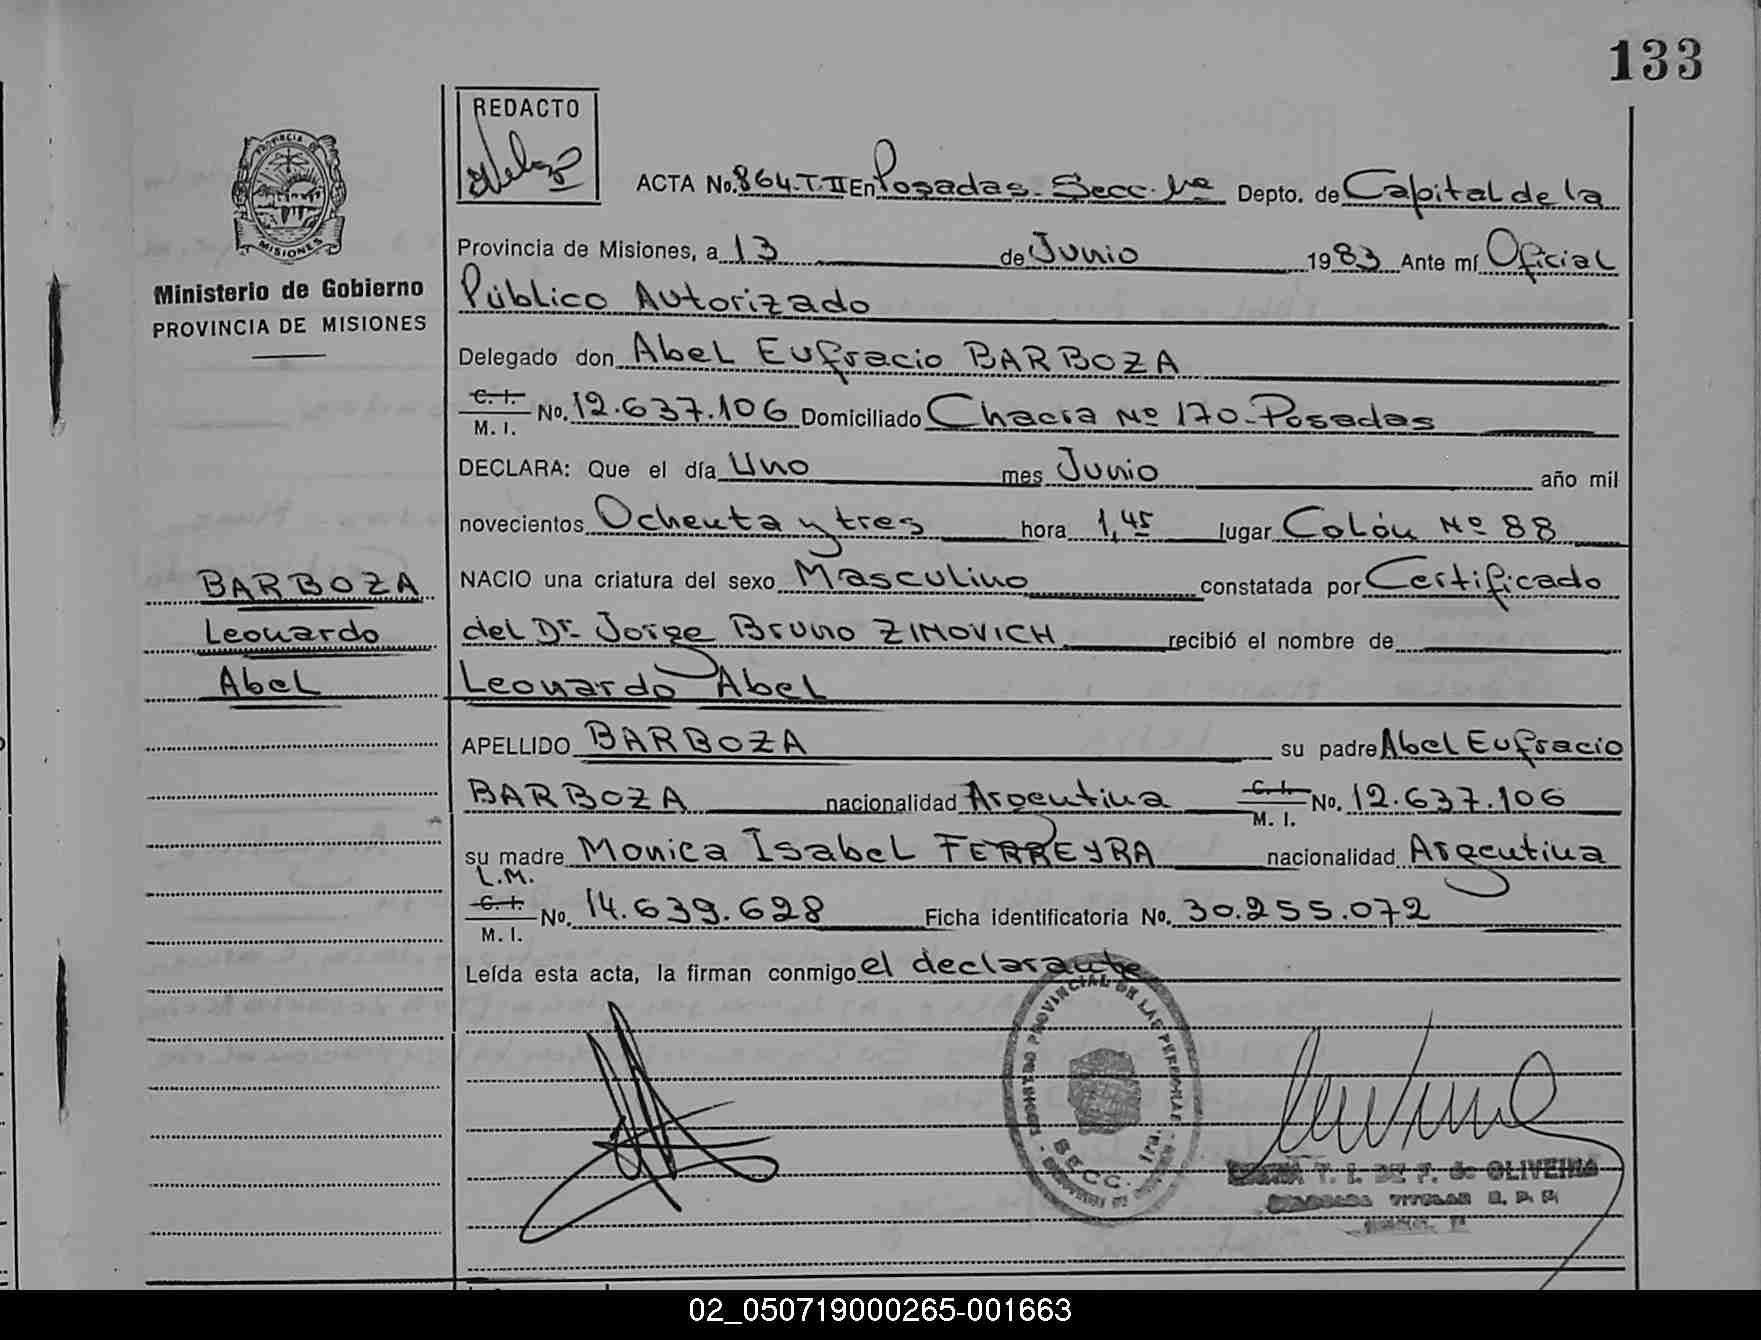 133
REDACTO
PROVINCIA DE
MISIONES
Ministerio de Gobierno
PROVINCIA DE MISIONES
ACTA No. 864-T.II En Posadas. Secc. 1ra Depto. de Capital de la
Provincia de Misiones, a 13 de Junio 1983 Ante mí Oficial
Público Autorizado
Delegado don Abel Eufracio BARBOZA
C. I.
M. I. No. 12.637.106 Domiciliado Chacra Nº 170-Posadas
DECLARA: Que el día Uno mes Junio año mil
novecientos Ochenta y tres hora 1,45 lugar Colón Nº 88
NACIO una criatura del sexo Masculino constatada por Certificado
del Dr. Jorge Bruno ZIMOVICH recibió el nombre de
Leonardo Abel
BARBOZA
Leonardo
Abel
APELLIDO BARBOZA su padre Abel Eufracio
BARBOZA nacionalidad Argentina C. I.
M. I. No. 12.637.106
su madre Monica Isabel FERREYRA nacionalidad Argentina
L.M.
C. I.
M. I. No. 14.639.628 Ficha identificatoria No. 30.255.072
Leída esta acta, la firman conmigo el declarante
REGISTRO PROVINCIAL DE LAS PERSONAS
SECC. 1ra.
T. I. DE F. de OLIVEIRA
TITULAR R. P. P.
02_050719000265-001663